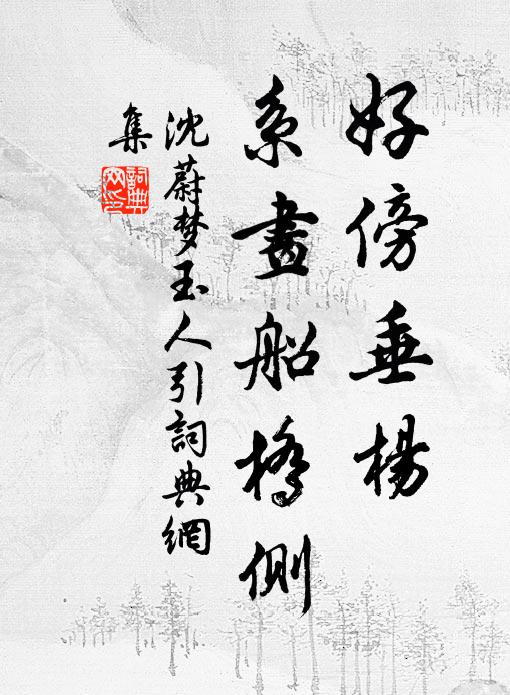 好傍垂楊
系畫船橋側
沈蔚梦玉人引詞典網
集
詞典
網印